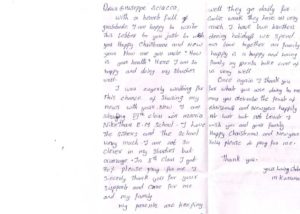 Dear Giuseppe Sciacca,
With a heart full of
gratitude I am happy to write
this letter to you just to wish
you Happy Christmas and new
year. How are you sir? How
is your health? Here I am so
happy and doing my studies
well.
I was eagerly waiting for
this chance of sharing my
news with your. Now I am
studing 9th class in
Nikethan E.M School. I love
the sisters and the School
very much. I am not so
clever in my studies but
average. In 8th class I got
please pray for me. I
sincerly thank you for your
support and care for me
and my family
my parents are keeping
well they go daily for
coolie work they love us very
much I have two brothers
during holidays we spend
our time together our family
happy is a happy and loving
family my parents take care of
us very well
Once again I thank you
for what you are doing to me
may god shower the fruits of
christmas and Newyear happily
At last but not least I
wish you and your family
Happy Christmas and Newyear
fully please do pray for me.
Thank you.
your loving child